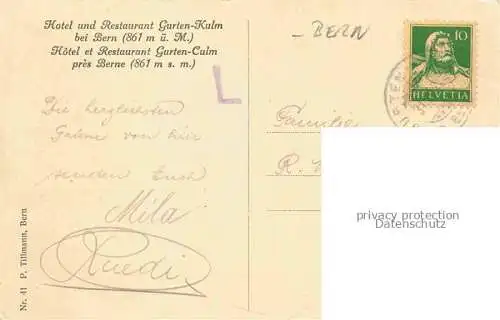 Hotel und Restaurant Gurten-Kulm
bei Bern (861 m ü. M.)
Hôtel et Restaurant Gurten-Culm
près Berne (861 m s. m.)
- BERN
10
HELVETIA
L
Die herzlichsten
von hier
senden Euch
Mila
Ruedi
Familie
R.
privacy protection
Datenschutz
Nr. 41 P. Tillmann, Bern